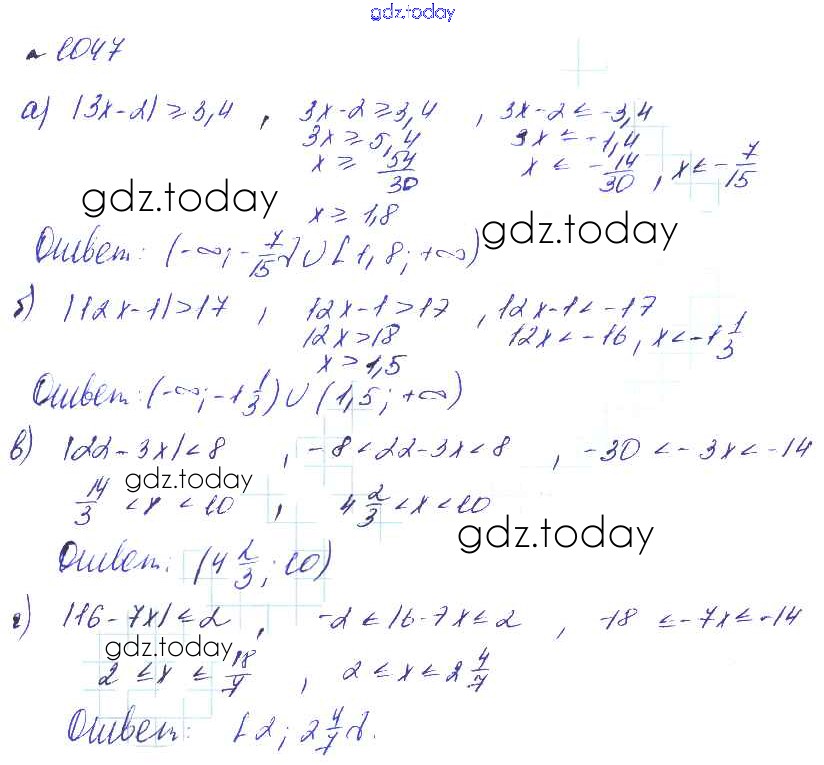 gdz.today
№ 1047
а) |3x-2| ≥ 3,4 , 3x-2 ≥ 3,4 , 3x-2 ≤ -3,4
3x ≥ 5,4 3x ≤ -1,4
x ≥ 54/30 x ≤ -14/30 , x ≤ -7/15
gdz.today x ≥ 1,8 gdz.today
Ответ: (-∞; -7/15] ∪ [1,8; +∞)
б) |12x-1| > 17 , 12x-1 > 17 , 12x-1 < -17
12x > 18 12x < -16, x < -1 1/3
x > 1,5
Ответ: (-∞; -1 1/3) ∪ (1,5; +∞)
в) |22-3x| < 8 , -8 < 22-3x < 8 , -30 < -3x < -14
gdz.today
14/3 < x < 10 , 4 2/3 < x < 10
gdz.today
Ответ: (4 2/3; 10)
г) |16-7x| ≤ 2 , -2 ≤ 16-7x ≤ 2 , -18 ≤ -7x ≤ -14
2 ≤ x ≤ 18/7 , 2 ≤ x ≤ 2 4/7
gdz.today
Ответ: [2; 2 4/7].